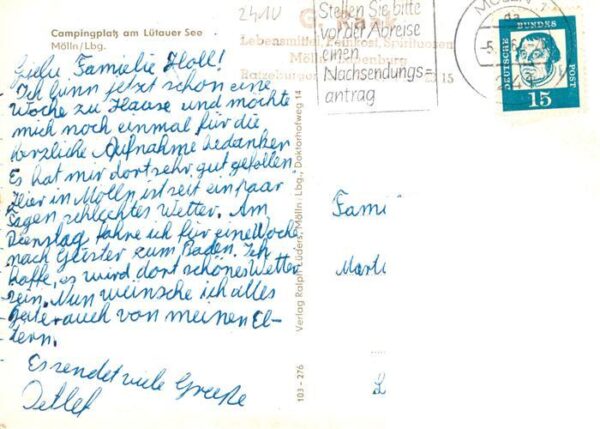 Campingplatz am Lütauer See
Mölln/Lbg.
2410
Lebensmittel, Feinkost, Spirituosen
Ratzeburger
15
Stellen Sie bitte
vor der Abreise
einen
Nachsendungs=
antrag
MÖLLN
DEUTSCHE BUNDES POST
15
Familie Holl!
Ich bin jetzt schon eine
Woche zu Hause und möchte
mich noch einmal für die
herzliche Aufnahme bedanken
Es hat mir dort sehr gut gefallen.
Hier in Mölln ist seit ein paar
Tagen schlechtes Wetter. Am
Dienstag fahre ich für eine Woche
nach zum Baden. Ich
hoffe, es wird dort schönes Wetter
sein. Nun wünsche ich alles
Gute auch von meinen El-
tern.
Es sendet viele Grüße
Detlef
Verlag Ralph Lüders, Mölln Lbg., Doktorhofweg 14
103 – 276
Fami